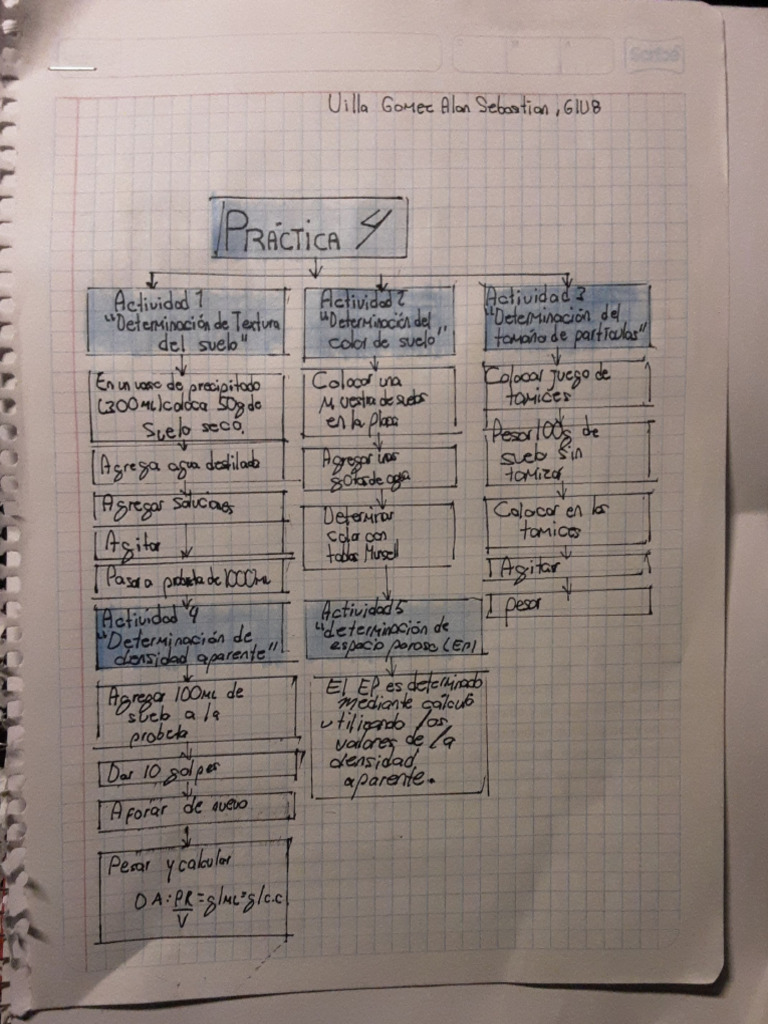 Scribe
Villa Gomez Alan Sebastian, G1UB
PRÁCTICA 4
Actividad 1
"Determinación de Textura
del suelo"
En un vaso de precipitado
(300 ML) coloca 50g de
suelo seco.
Agrega agua destilada
Agregar soluciones
Agitar
Pasar a probeta de 1000ML
Actividad 2
"Determinación del
color de suelo"
Colocar una
muestra de suelos
en la placa
Agregar unas
gotas de agua
Determinar
color con
tablas Munsell
Actividad 3
"Determinación del
tamaño de partículas"
Colocar juego de
tamices
Pesar 100g de
suelo sin
tamizar
Colocar en los
tamices
Agitar
pesar
Actividad 4
"Determinación de
densidad aparente"
Agregar 100ML de
suelo a la
probeta
Dar 10 golpes
Aforar de nuevo
Pesar y calcular
DA: PR/V = g/ML = g/c.c
Actividad 5
"determinación de
espacio poroso (EP)
El EP es determinado
mediante cálculo
utilizando los
valores de la
densidad
aparente.